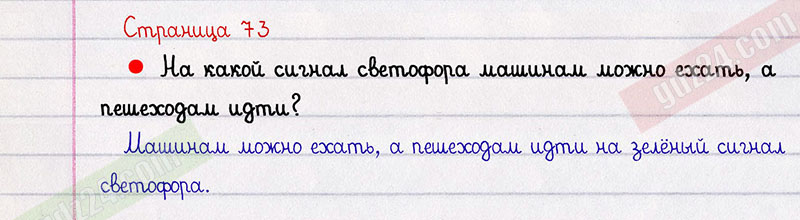 Страница 73
На какой сигнал светофора машинам можно ехать, а
пешеходам идти?
Машинам можно ехать, а пешеходам идти на зелёный сигнал
светофора.
gdz24.com
gdz24.com